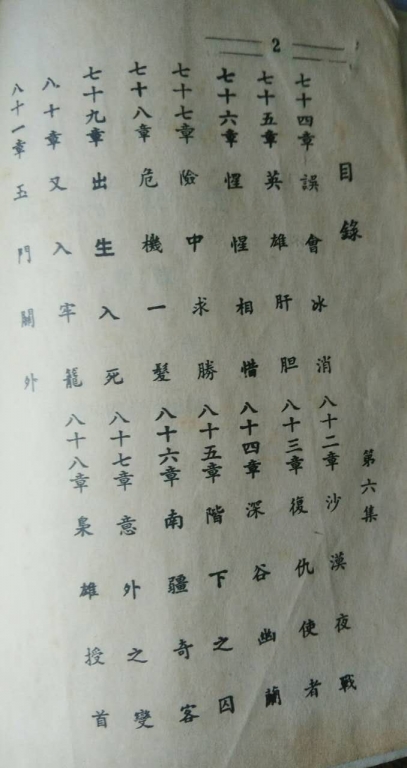 2
目錄
第六集
七十四章 誤會冰消
七十五章 英雄肝胆
七十六章 惺惺相惜
七十七章 險中求勝
七十八章 危機一髮
七十九章 出生入死
八十章 又入牢籠
八十一章 玉門關外
八十二章 沙漠夜戰
八十三章 復仇使者
八十四章 深谷幽蘭
八十五章 階下之囚
八十六章 南疆奇客
八十七章 意外之變
八十八章 梟雄授首